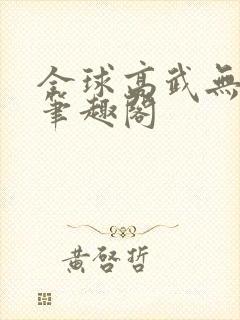 全球高武無
筆趣閣
黃啓哲